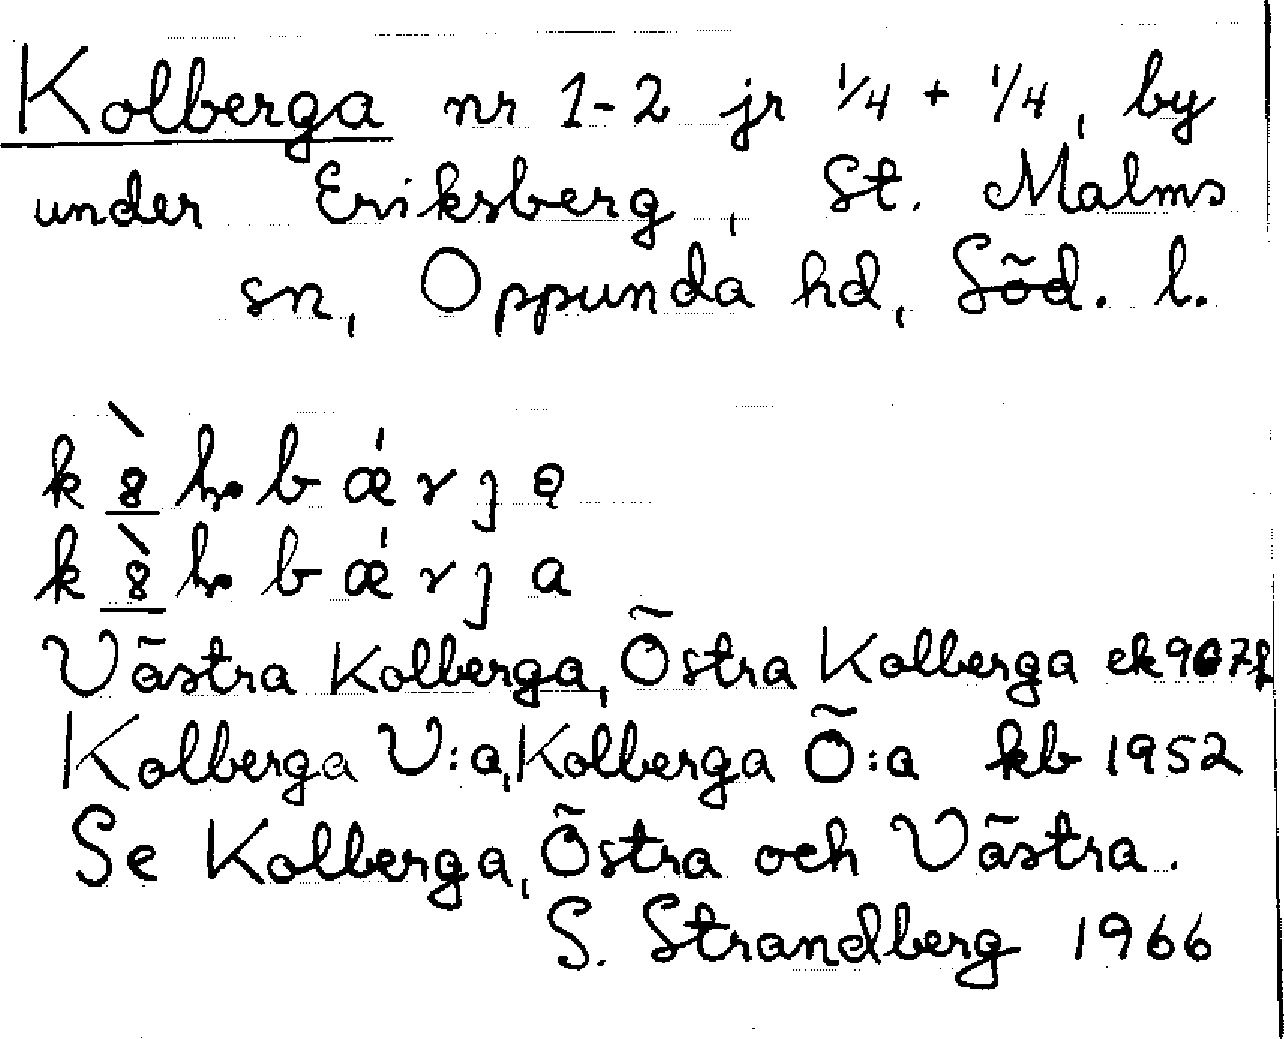 Kolberga nr 1-2 jr 1/4 + 1/4, by
under Eriksberg, St. Malms
sn, Oppunda hd, Söd. l.
Västra Kolberga, Östra Kolberga ek 967f
Kolberga V:a, Kolberga Ö:a kb 1952
Se Kolberga, Östra och Västra.
S. Strandberg 1966